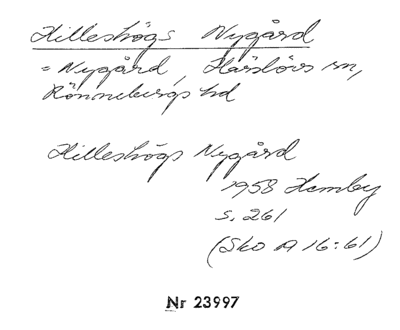 Hilleshögs Nygård
= Nygård, Härslövs sn,
Rönnebergs hd
Hilleshögs Nygård
1958 Hemby
s. 261
(Sko A 16:61)
Nr 23997